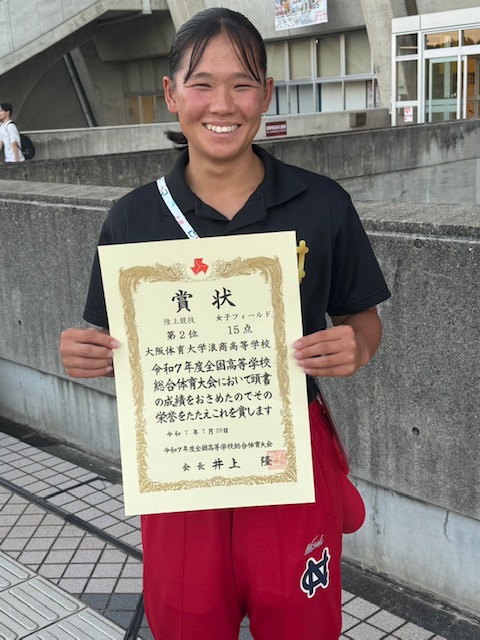 賞状
陸上競技 女子フィールド
第2位 15点
大阪体育大学浪商高等学校
令和7年度全国高等学校
総合体育大会において頭書
の成績をおさめたのでその
栄誉をたたえこれを賞します
令和7年7月29日
令和7年度全国高等学校総合体育大会
会長 井上 隆